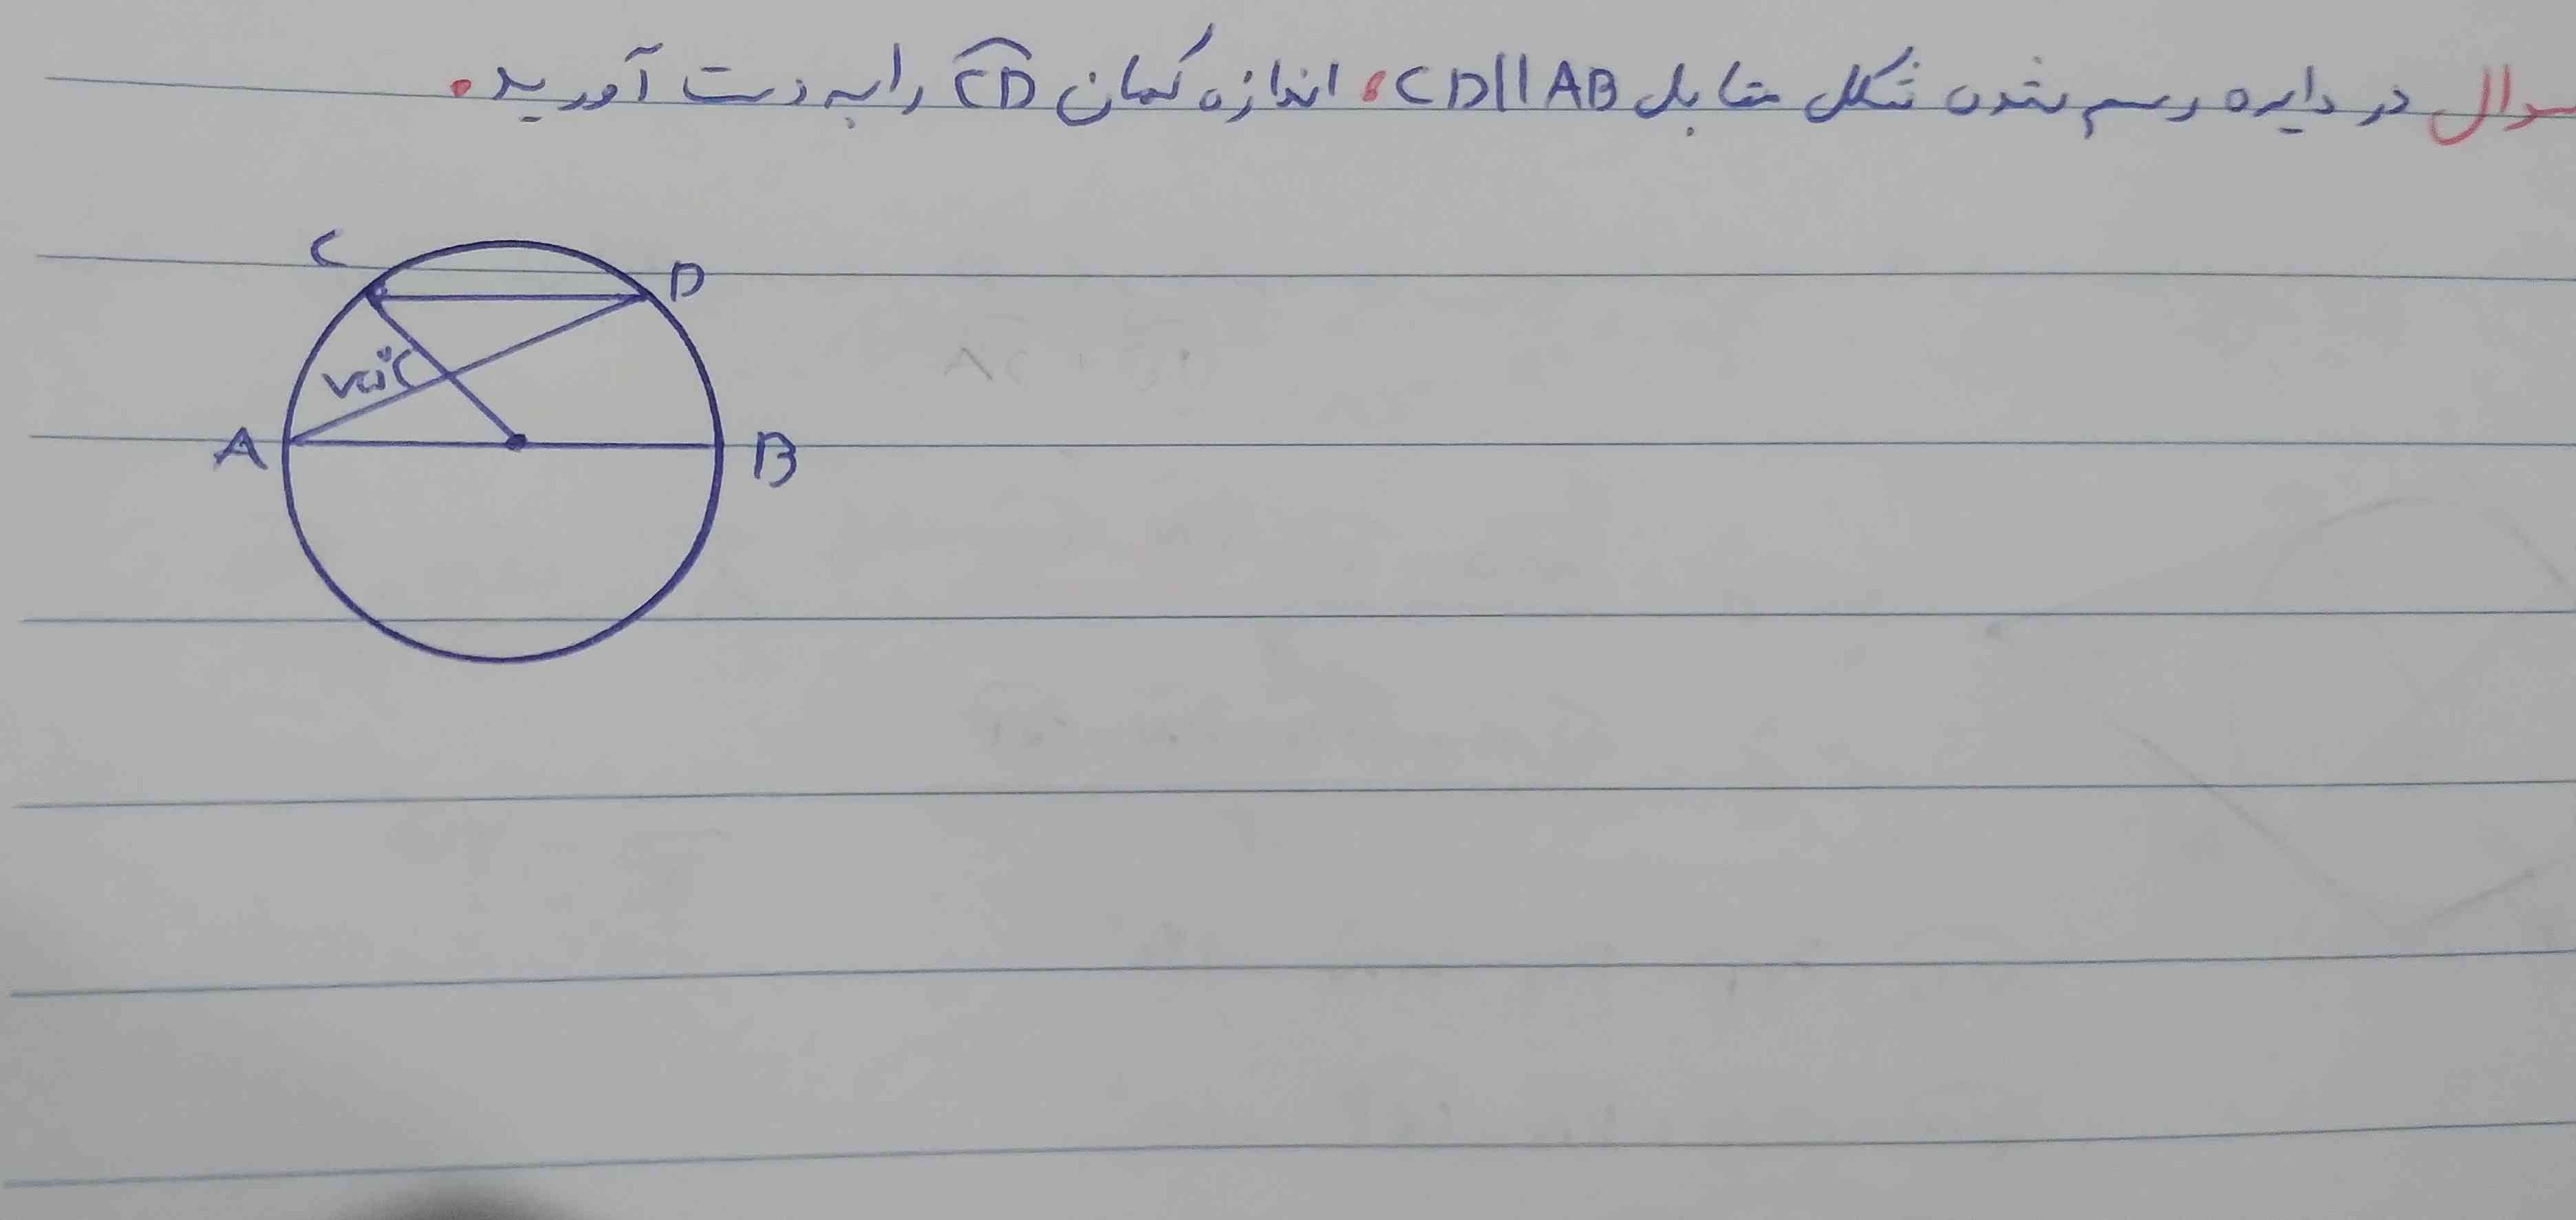 سوال در دایره رسم شده شکل مقابل CD||AB، اندازه کمان CD را به دست آورید.
C
D
A
B